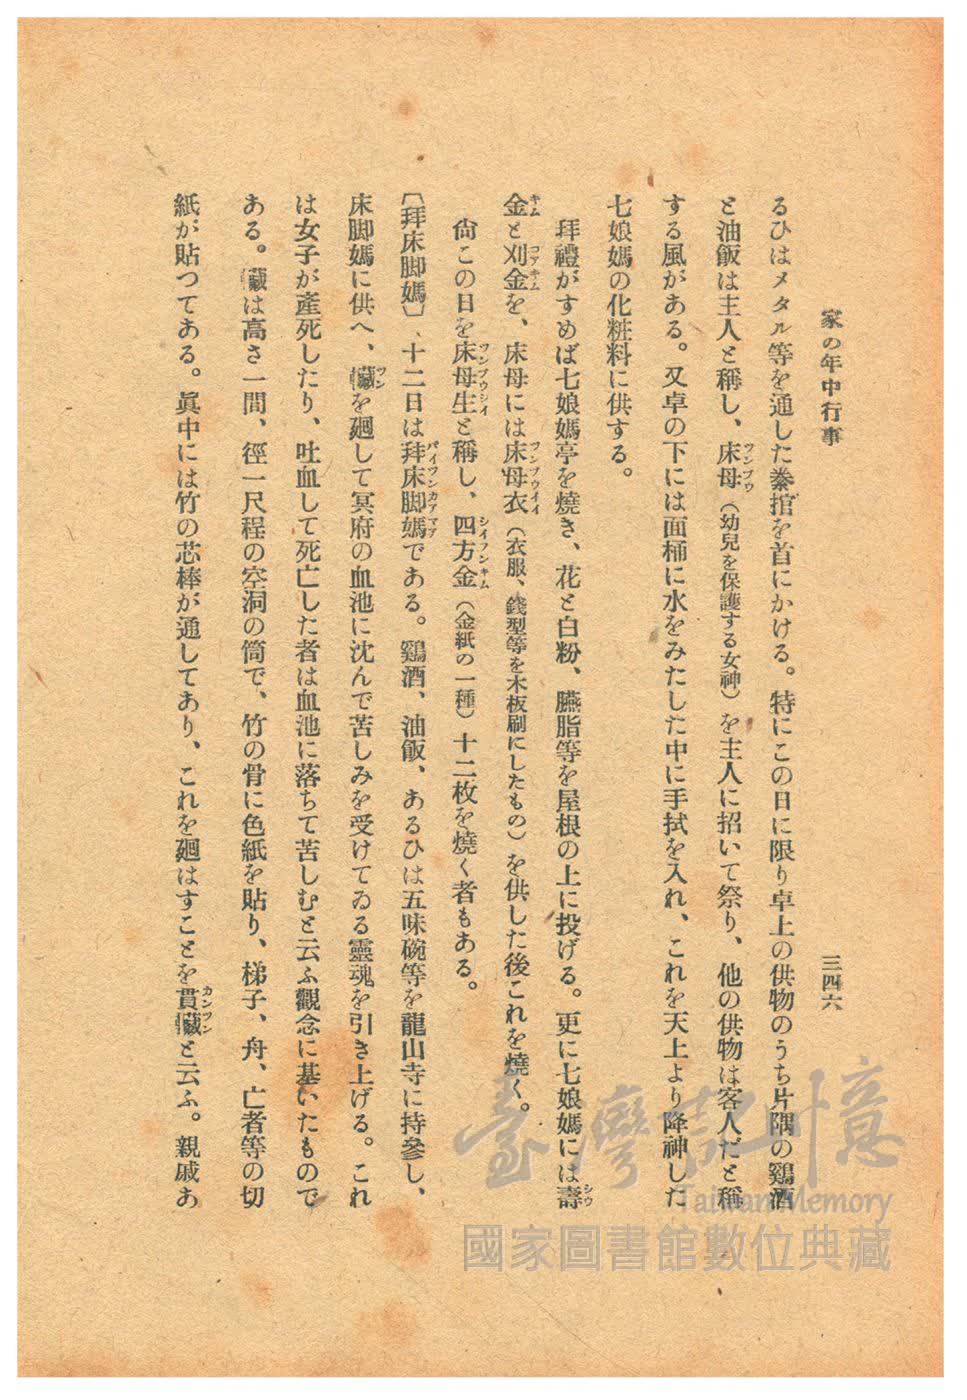 家の年中行事
三四六
るひはメタル等を通した絭捾を首にかける。特にこの日に限り卓上の供物のうち片隅の鷄酒
と油飯は主人と稱し、床母（幼兒を保護する女神）を主人に招いて祭り、他の供物は客人だと稱
ツンブウ
する風がある。又卓の下には面桶に水をみたした中に手拭を入れ、これを天上より降神した
七娘媽の化粧料に供する。
拜禮がすめば七娘媽亭を燒き、花と白粉、臙脂等を屋根の上に投げる。更に七娘媽には壽
シウ
金と刈金を、床母には床母衣（衣服、錢型等を木板刷にしたもの）を供した後これを燒く。
キム
コアキム
ツンブウイイ
尙この日を床母生と稱し、四方金（金紙の一種）十二枚を燒く者もある。
ツンブウシイ
シイフンキム
〔拜床脚媽〕、十二日は拜床脚媽である。鷄酒、油飯、あるひは五味碗等を龍山寺に持參し、
パイツンカアマア
床脚媽に供へ、を廻して冥府の血池に沈んで苦しみを受けてゐる靈魂を引き上げる。これ
ツン
は女子が產死したり、吐血して死亡した者は血池に落ちて苦しむと云ふ觀念に基いたもので
ある。は高さ一間、徑一尺程の空洞の筒で、竹の骨に色紙を貼り、梯子、舟、亡者等の切
紙が貼つてある。眞中には竹の芯棒が通してあり、これを廻はすことを貫と云ふ。親戚あ
カンツン
臺灣記憶
Taiwan Memory
國家圖書館數位典藏